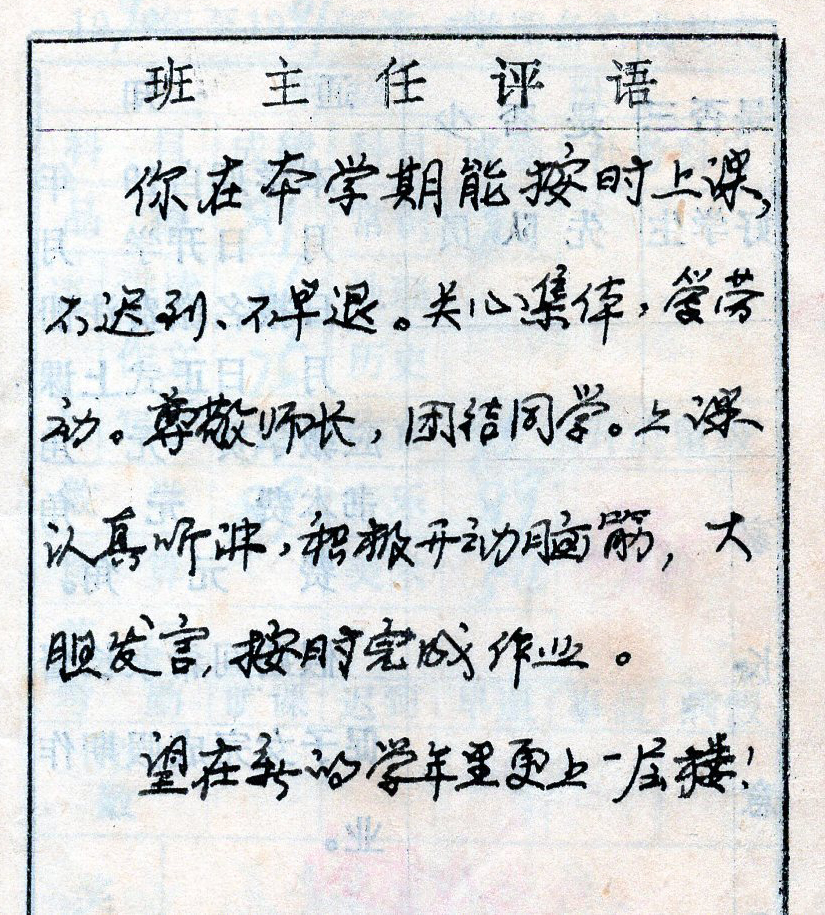 班主任评语
你在本学期能按时上课，
不迟到、不早退。关心集体，爱劳
动。尊敬师长，团结同学。上课
认真听讲，积极开动脑筋，大
胆发言，按时完成作业。
望在新的学年里更上一层楼！